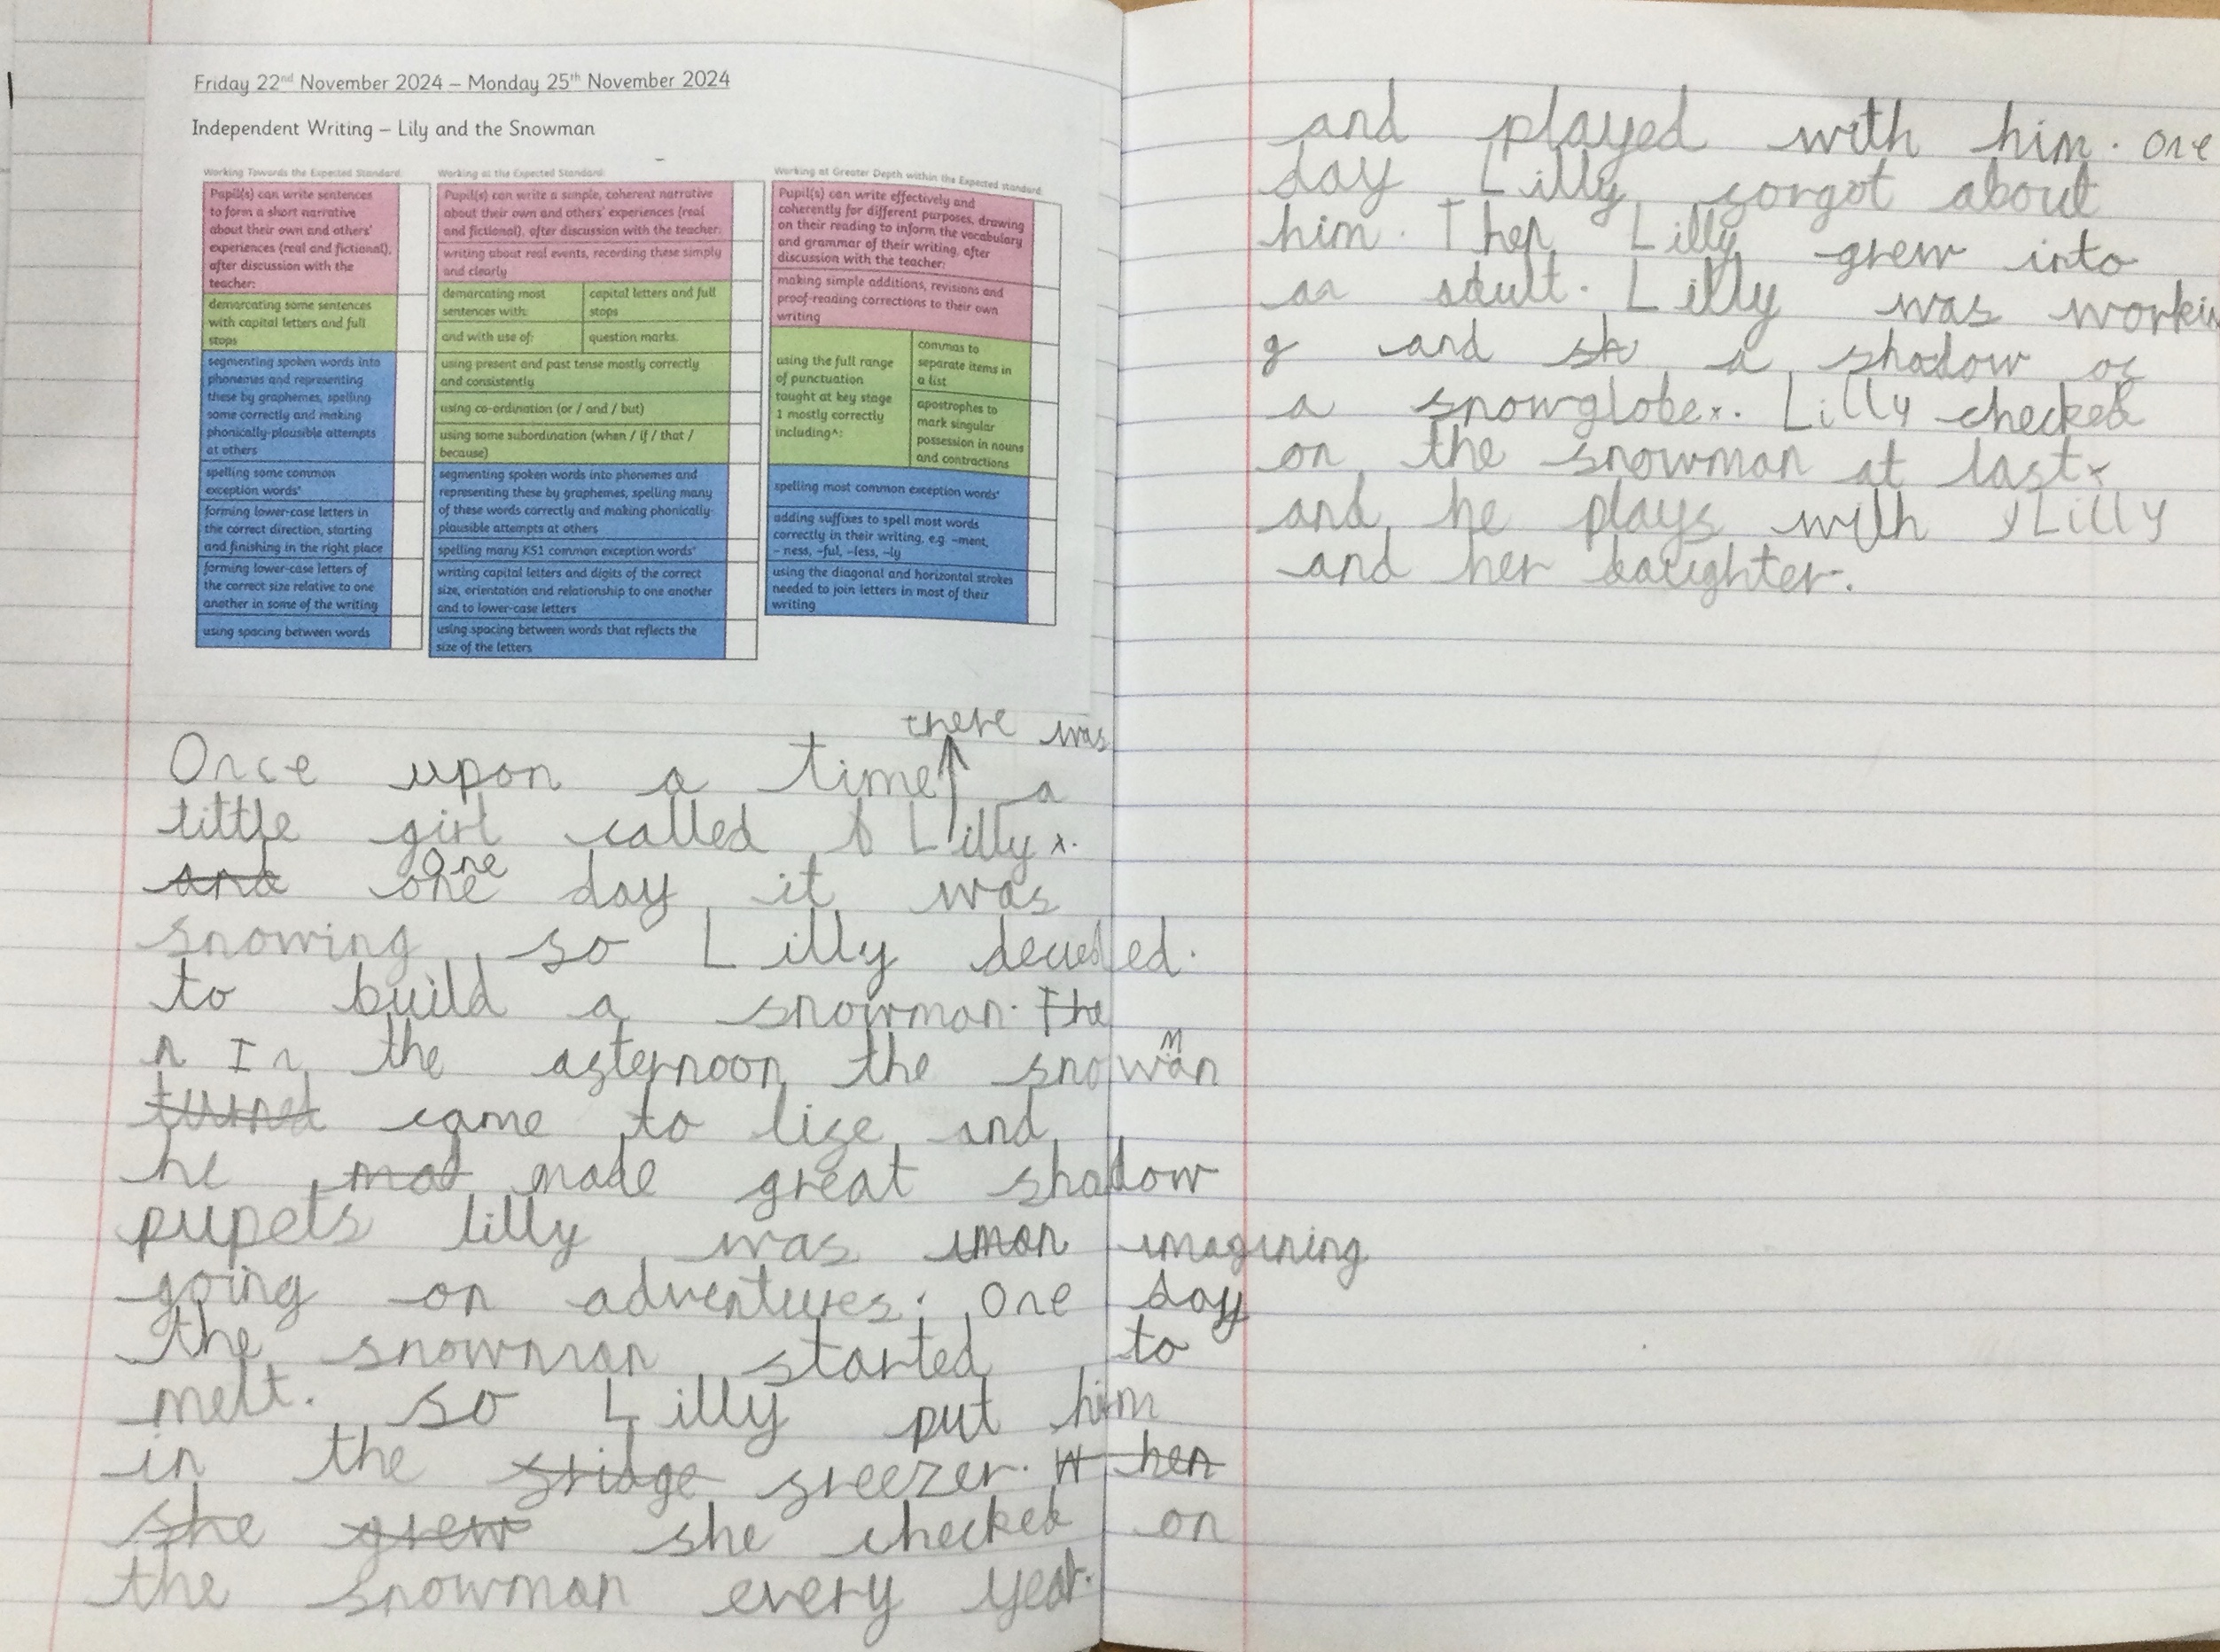 Friday 22nd November 2024 – Monday 25th November 2024
Independent Writing – Lily and the Snowman
Working Towards the Expected Standard:
Pupil(s) can write sentences
to form a short narrative
about their own and others'
experiences (real and fictional),
after discussion with the
teacher:
demarcating some sentences
with capital letters and full
stops
segmenting spoken words into
phonemes and representing
these by graphemes, spelling
some correctly and making
phonically-plausible attempts
at others
spelling some common
exception words*
forming lower-case letters in
the correct direction, starting
and finishing in the right place
forming lower-case letters of
the correct size relative to one
another in some of the writing
using spacing between words
Working at the Expected Standard:
Pupil(s) can write a simple, coherent narrative
about their own and others' experiences (real
and fictional), after discussion with the teacher:
writing about real events, recording these simply
and clearly
demarcating most
sentences with:
capital letters and full
stops
and with use of:
question marks.
using present and past tense mostly correctly
and consistently
using co-ordination (or / and / but)
using some subordination (when / if / that /
because)
segmenting spoken words into phonemes and
representing these by graphemes, spelling many
of these words correctly and making phonically-
plausible attempts at others
spelling many KS1 common exception words*
writing capital letters and digits of the correct
size, orientation and relationship to one another
and to lower-case letters
using spacing between words that reflects the
size of the letters
Working at Greater Depth within the Expected standard
Pupil(s) can write effectively and
coherently for different purposes, drawing
on their reading to inform the vocabulary
and grammar of their writing, after
discussion with the teacher:
making simple additions, revisions and
proof-reading corrections to their own
writing
using the full range
of punctuation
taught at key stage
1 mostly correctly
including^:
commas to
separate items in
a list
apostrophes to
mark singular
possession in nouns
and contractions
spelling most common exception words*
adding suffixes to spell most words
correctly in their writing, e.g. –ment,
– ness, –ful, –less, –ly
using the diagonal and horizontal strokes
needed to join letters in most of their
writing
there was
Once upon a time a
little girl called Lilly.
and one One day it was
snowing so Lilly decided.
to build a snowman. The
n In the afternoon the snowman
turned came to life and
he mad made great shadow
pupets lilly was iman imagining
going on adventures. One day
the snowman started to
melt. so Lilly put him
in the fridge freezer. When
she grew she checked on
the snowman every year.
and played with him. One
day Lilly forgot about
him. Then Lilly grew into
an adult. Lilly was workin
g and sh a shadow of
a snowglobe. Lilly checked
on the snowman at last
and he plays with Lilly
and her daughter.